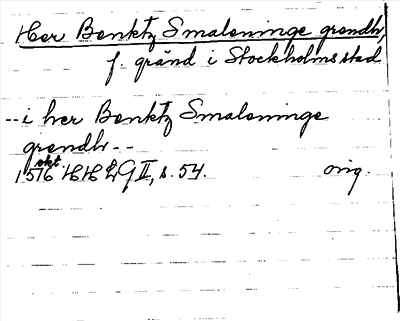 Her Benktz Smaleninge grendh,
f. gränd i Stockholms stad
-- i her Benktz Smaleninge
grendh --
okt.
1516 HH ÄG II, s. 54. orig.